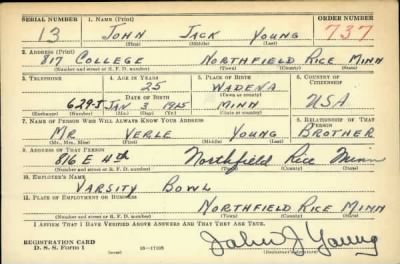 SERIAL NUMBER 1. Name (Print) ORDER NUMBER
13 JOHN JACK YOUNG 737
(First) (Middle) (Last)
2. Address (Print)
817 COLLEGE NORTHFIELD RICE MINN
(Number and street or R. F. D. number) (Town) (County) (State)
3. Telephone 4. Age in Years 5. Place of Birth 6. Country of Citizenship
25 WADENA
Date of Birth (Town or county)
629-J JAN 3 1925 MINN USA
(Mo.) (Day) (Yr.) (State or country)
7. Name of Person Who Will Always Know Your Address 8. Relationship of That Person
MR VERLE YOUNG BROTHER
(Mr., Mrs., Miss) (First) (Middle) (Last)
9. Address of That Person
816 E 4th Northfield Rice Minn
(Number and street or R. F. D. number) (Town) (County) (State)
10. Employer's Name
VARSITY BOWL
11. Place of Employment or Business
NORTHFIELD RICE MINN
(Number and street or R. F. D. number) (Town) (County) (State)
I Affirm That I Have Verified Above Answers and That They Are True.
REGISTRATION CARD
D. S. S. Form 1 John J Young
(Registrant's signature)